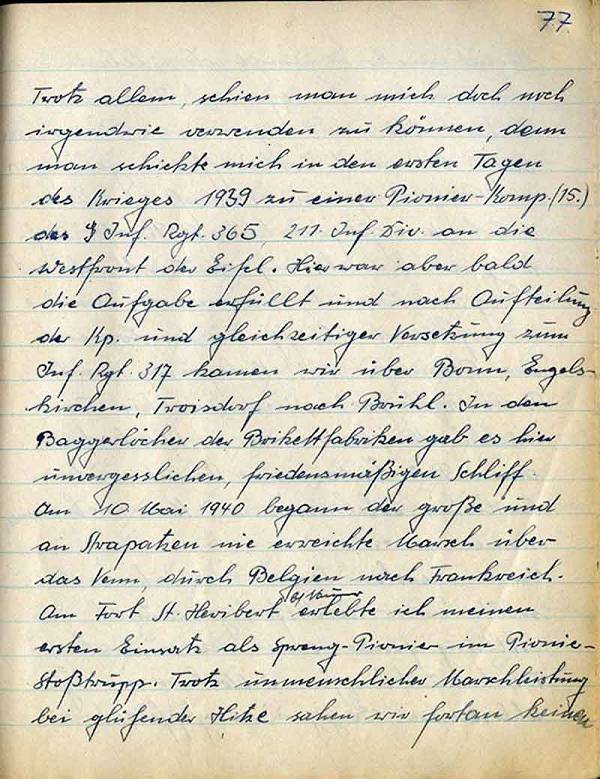 77
Trotz allem, schien man mich doch noch
irgendwie verwenden zu können, denn
man schickte mich in den ersten Tagen
des Krieges 1939 zu einer Pionier-Komp. (15.)
des Inf. Rgt. 365, 211. Inf. Div. an die
Westfront der Eifel. Hier war aber bald
die Aufgabe erfüllt und nach Aufteilung
der Kp. und gleichzeitiger Versetzung zum
Inf. Rgt. 317 kamen wir über Bonn, Engels-
kirchen, Troisdorf nach Brühl. In den
Baggerlöcher der Brikettfabriken gab es hier
unvergesslichen, friedensmäßigen Schliff.
Am 10 Mai 1940 begann der große und
an Strapatzen nie erreichte Marsch über
das Venn, durch Belgien nach Frankreich.
Am Fort St. Heribert erlebte ich meinen
ersten Einsatz als Spreng-Pionier im Pionie-
Stoßtrupp. Trotz unmenschlicher Marschleistung
bei glühender Hitze sahen wir fortan keinen